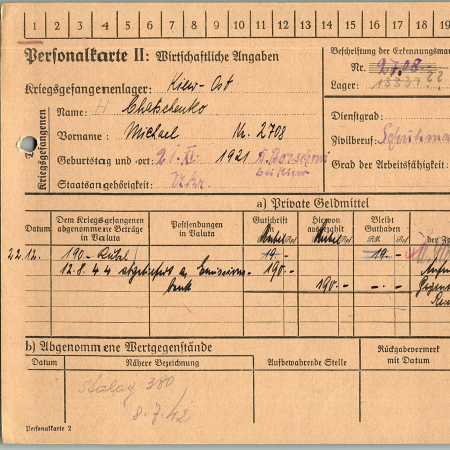 1 2 3 4 5 6 7 8 9 10 11 12 13 14 15 16 17 18 19
Personalkarte II: Wirtschaftliche Angaben
Beschriftung der Erkennungsma
Nr. 2708
Lager:
Kriegsgefangenenlager: Kiew-Ost
Kriegsgefangenen
Name: Chatschenko
Vorname: Michael Nr. 2708
Geburtstag und -ort: 21. XI. 1921
bei Kiew
Staatsangehörigkeit: Ukr.
Dienstgrad:
Zivilberuf:
Grad der Arbeitsfähigkeit:
a) Private Geldmittel
Datum
Dem Kriegsgefangenen abgenommene Beträge in Valuta
Postsendungen in Valuta
Gutschrift in
Hiervon ausgezahlt
Bleibt Guthaben
22.12. 190.- Rubel 19.- 19.-
12.8.44 abgeliefert a. Emissions- 190.-
bank 190.- -.-
b) Abgenommene Wertgegenstände
Datum
Nähere Bezeichnung
Aufbewahrende Stelle
Rückgabevermerk mit Datum
Stalag 380
8.7.42
Personalkarte 2